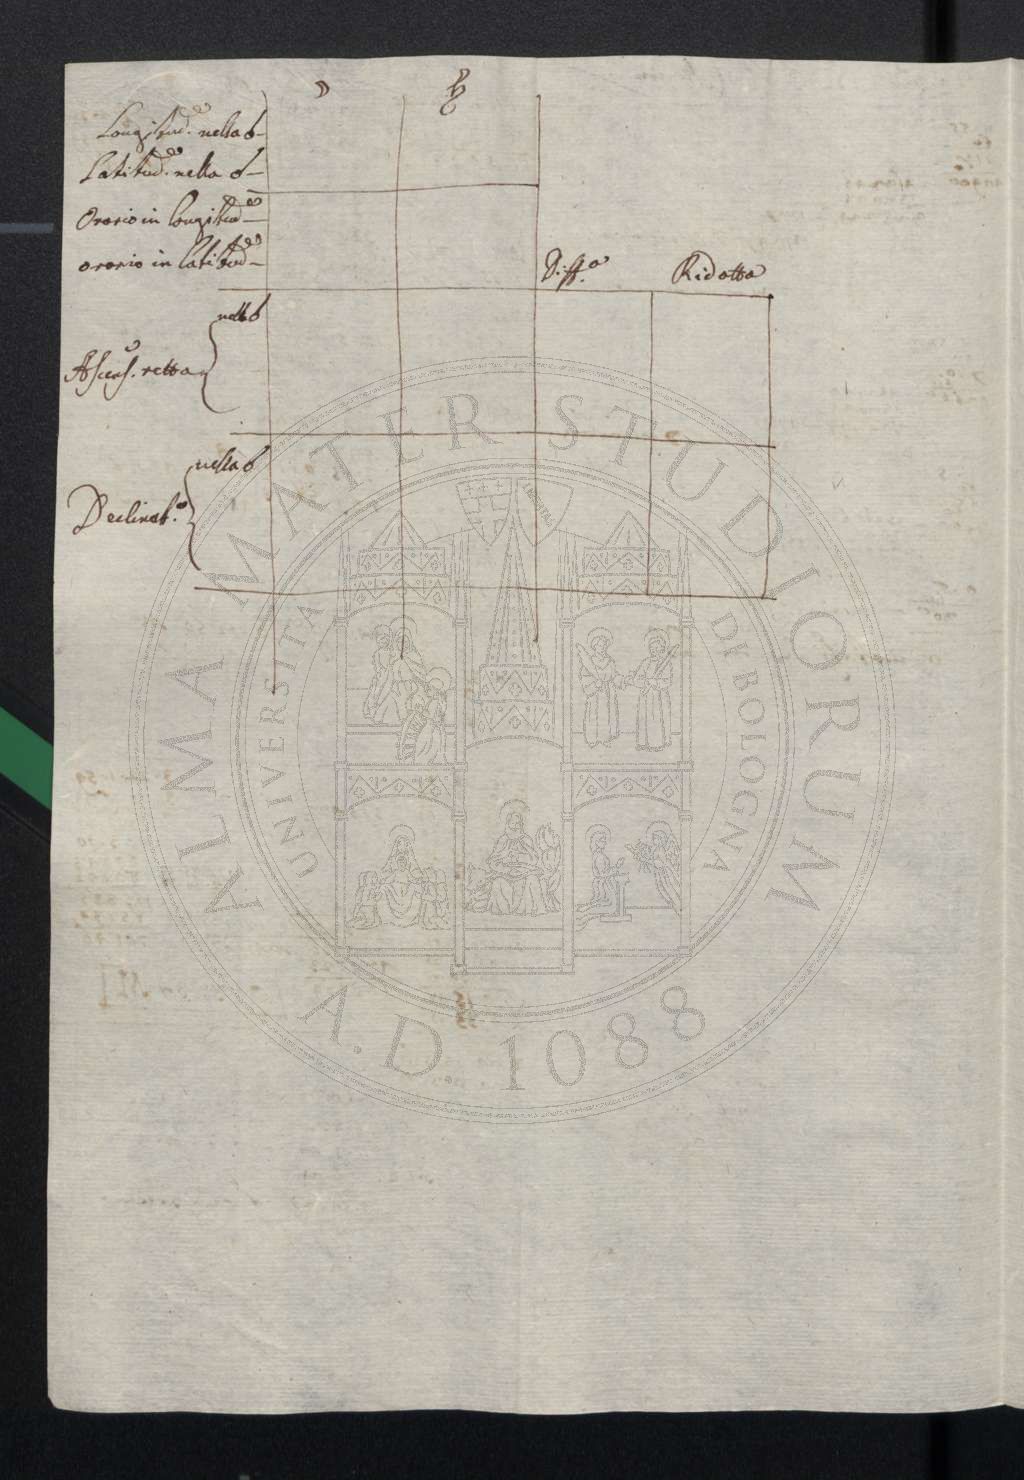 ☽ ♄
Longitud.e nella ☌
Latitud.e nella ☌
Orario in longitud.e
orario in latitud.e
Diff.a Ridotta
nella ☌
Ascens.e retta
nella ☌
Declinat.e
ALMA MATER STUDIORUM
UNIVERSITÀ DI BOLOGNA
A.D. 1088